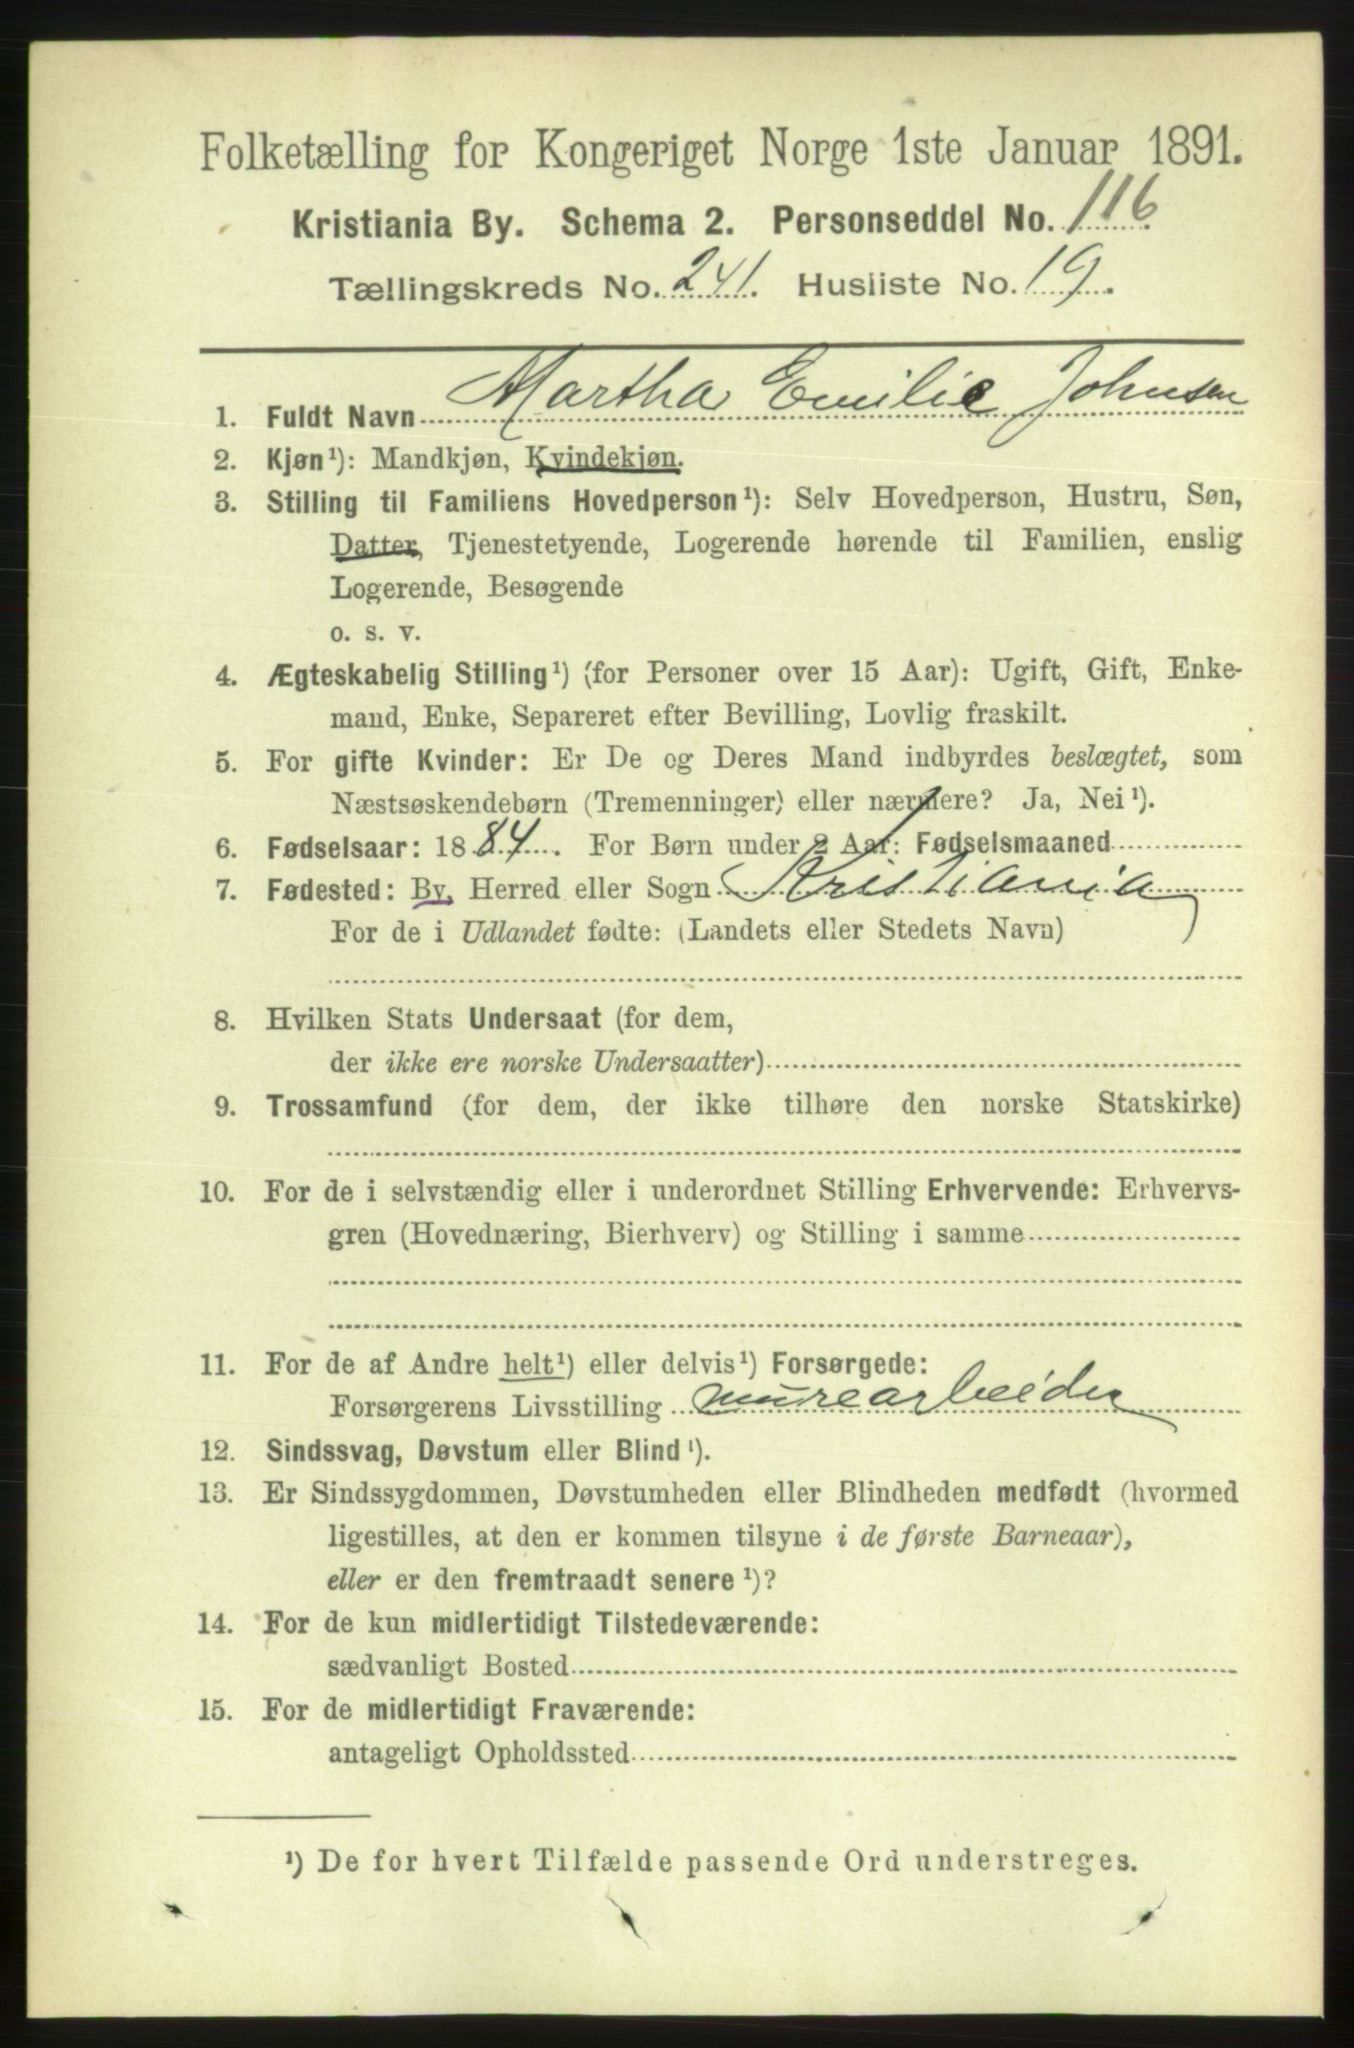 Folketælling for Kongeriget Norge 1ste Januar 1891.
Kristiania By. Schema 2. Personseddel No. 116
Tællingskreds No. 241. Husliste No. 19.
1. Fuldt Navn Martha Emilie Johnsen
2. Kjøn¹): Mandkjøn, Kvindekjøn.
3. Stilling til Familiens Hovedperson¹): Selv Hovedperson, Hustru, Søn,
Datter, Tjenestetyende, Logerende hørende til Familien, enslig
Logerende, Besøgende
o. s. v.
4. Ægteskabelig Stilling¹) (for Personer over 15 Aar): Ugift, Gift, Enke-
mand, Enke, Separeret efter Bevilling, Lovlig fraskilt.
5. For gifte Kvinder: Er De og Deres Mand indbyrdes beslægtet, som
Næstsøskendebørn (Tremenninger) eller nærmere? Ja, Nei¹).
6. Fødselsaar: 1884. For Børn under 2 Aar: Fødselsmaaned
7. Fødested: By, Herred eller Sogn Kristiania
For de i Udlandet fødte: (Landets eller Stedets Navn)
8. Hvilken Stats Undersaat (for dem,
der ikke ere norske Undersaatter)
9. Trossamfund (for dem, der ikke tilhøre den norske Statskirke)
10. For de i selvstændig eller i underordnet Stilling Erhvervende: Erhvervs-
gren (Hovednæring, Bierhverv) og Stilling i samme
11. For de af Andre helt¹) eller delvis¹) Forsørgede:
Forsørgerens Livsstilling murearbeider
12. Sindssvag, Døvstum eller Blind¹).
13. Er Sindssygdommen, Døvstumheden eller Blindheden medfødt (hvormed
ligestilles, at den er kommen tilsyne i de første Barneaar),
eller er den fremtraadt senere¹)?
14. For de kun midlertidigt Tilstedeværende:
sædvanligt Bosted
15. For de midlertidigt Fraværende:
antageligt Opholdssted
¹) De for hvert Tilfælde passende Ord understreges.